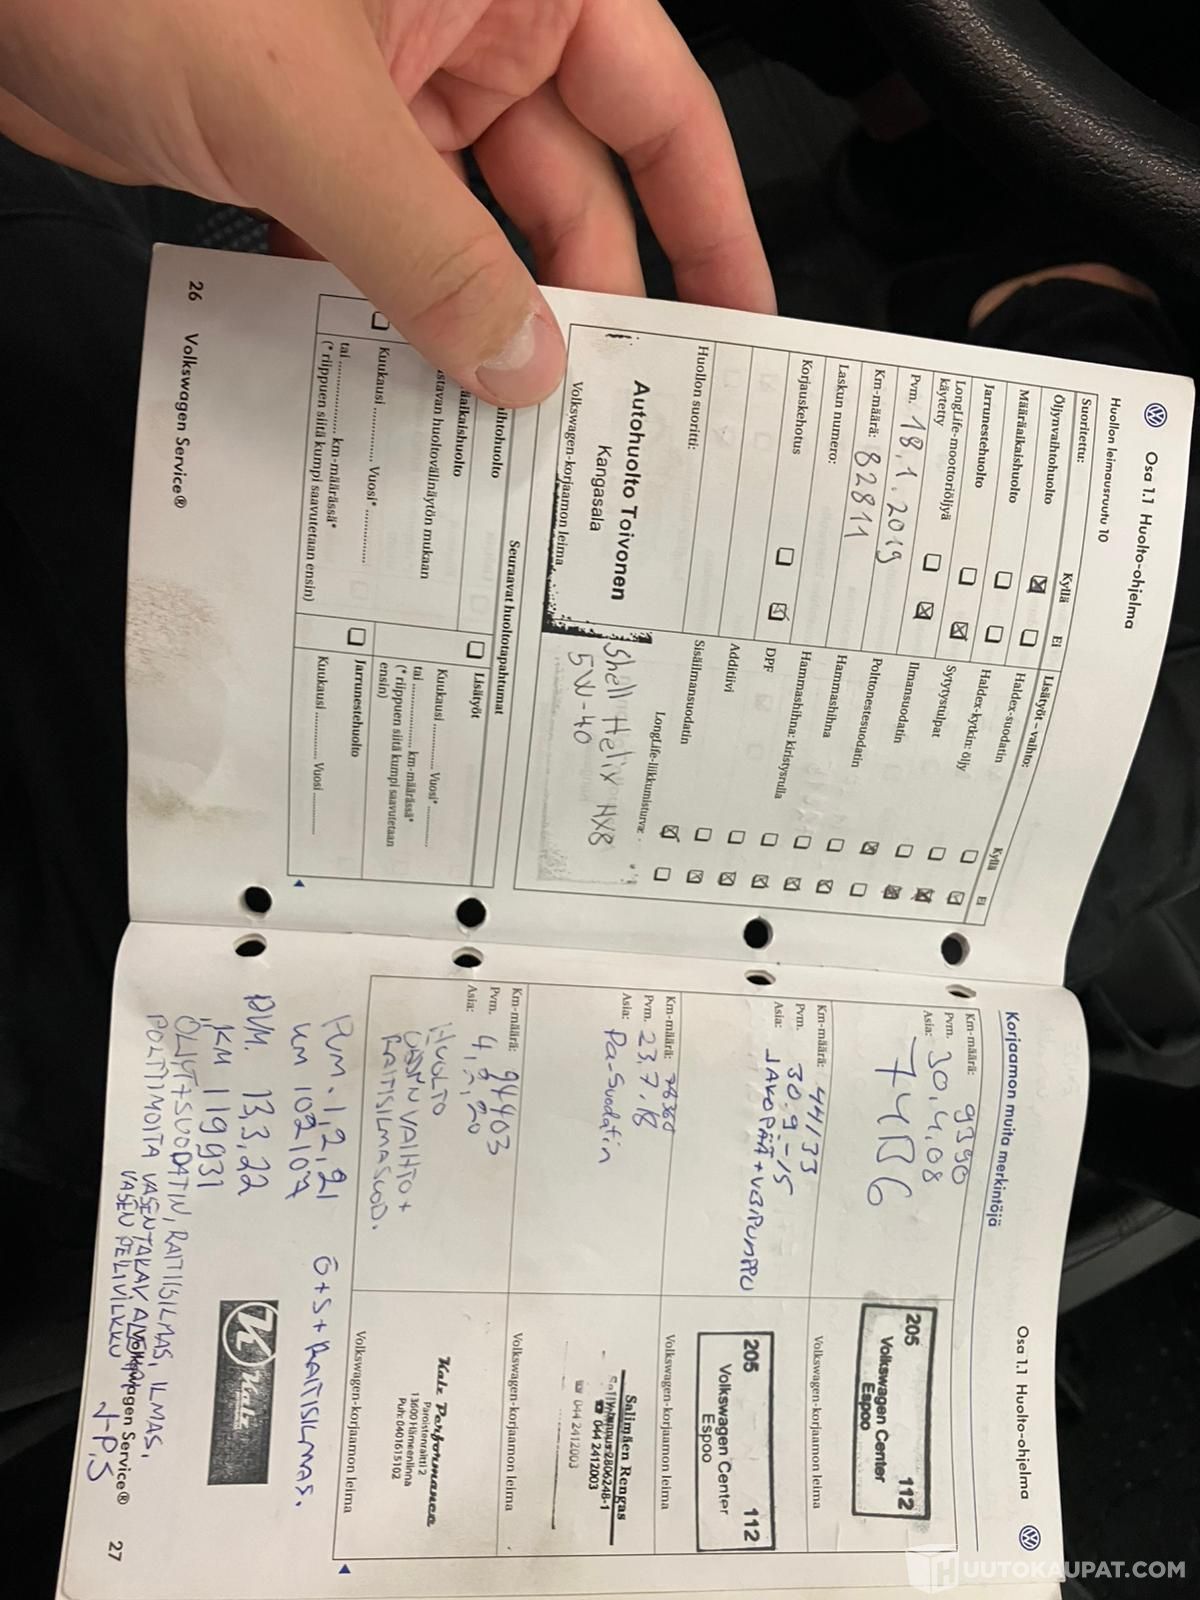 Osa 1.1 Huolto-ohjelma
Huollon leimausruutu 10
Suoritettu:
Kyllä
Ei
Öljynvaihtohuolto
Määräaikaishuolto
Jarrunestehuolto
LongLife-moottoriöljyä
käytetty
Pvm. 18.1.2019
Km-määrä: 82811
Laskun numero:
Korjauskehotus
Huollon suoritti:
Autohuolto Toivonen
Kangasala
Volkswagen-korjaamon leima
Lisätyöt – vaihto:
Kyllä
Ei
Haldex-suodatin
Haldex-kytkin: öljy
Sytytystulpat
Ilmansuodatin
Polttonestesuodatin
Hammashihna
Hammashihna: kiristysrulla
DPF
Additiivi
Sisäilmansuodatin
LongLife-liikkumisturva:
Shell Helix HX8
5W-40
Seuraavat huoltotapahtumat
aihtohuolto
äaikaishuolto
stavan huoltovälinäytön mukaan
Kuukausi Vuosi*
tai km-määrässä*
(* riippuen siitä kumpi saavutetaan ensin)
Lisätyöt
Kuukausi Vuosi*
tai km-määrässä*
(* riippuen siitä kumpi saavutetaan
ensin)
Jarrunestehuolto
Kuukausi Vuosi
26 Volkswagen Service®
Osa 1.1 Huolto-ohjelma
Korjaamon muita merkintöjä
Km-määrä: 9390
Pvm. 30.4.08
Asia: 74B6
205 112
Volkswagen Center
Espoo
Volkswagen-korjaamon leima
Km-määrä: 44133
Pvm. 30.9-15
Asia: JAKOPÄÄ + VESIPUMPPU
205 112
Volkswagen Center
Espoo
Volkswagen-korjaamon leima
Km-määrä: 78360
Pvm. 23.7.18
Asia: Pa-Suodatin
Salimäen Rengas
2806248-1
☎ 044 2412003
☎ 044 2412003
Volkswagen-korjaamon leima
Km-määrä: 94403
Pvm. 4.2.20
Asia:
HUOLTO
VAIHTO +
RAITISILMASUOD.
Kalz Performance
Paroistenraitti 2
13600 Hämeenlinna
Puh: 0401615102
Volkswagen-korjaamon leima
PVM. 1.2.21
KM 102107
Ö+S+RAITISILMAS.
PVM. 13.3.22
KM 119931
ÖLJYT+SUODATIN, RAITISILMAS, ILMAS.
POLTTIMOITA VASEN TAKA
VASEN PEILIVILKKU
J-P.S
Kalz
Volkswagen Service® 27
HUUTOKAUPAT.COM